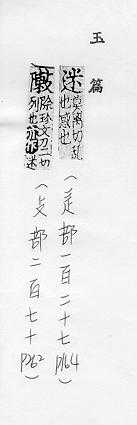 玉篇
迷莫奚切乱
也惑也
(辵部一百二十七 P164)
敶除珍丈刃二切
列也亦作迷
(攴部二百七十 P262)